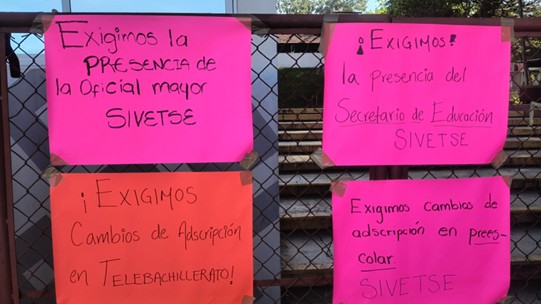 Exigimos la
PRESENCIA de
la Oficial mayor
SIVETSE
¡EXIGIMOS!
la presencia del
Secretario de Educación
SIVETSE
¡EXIGIMOS
Cambios de Adscripción
en TELEBACHILLERATO!
Exigimos cambios de
adscripción en prees-
colar.
SIVETSE